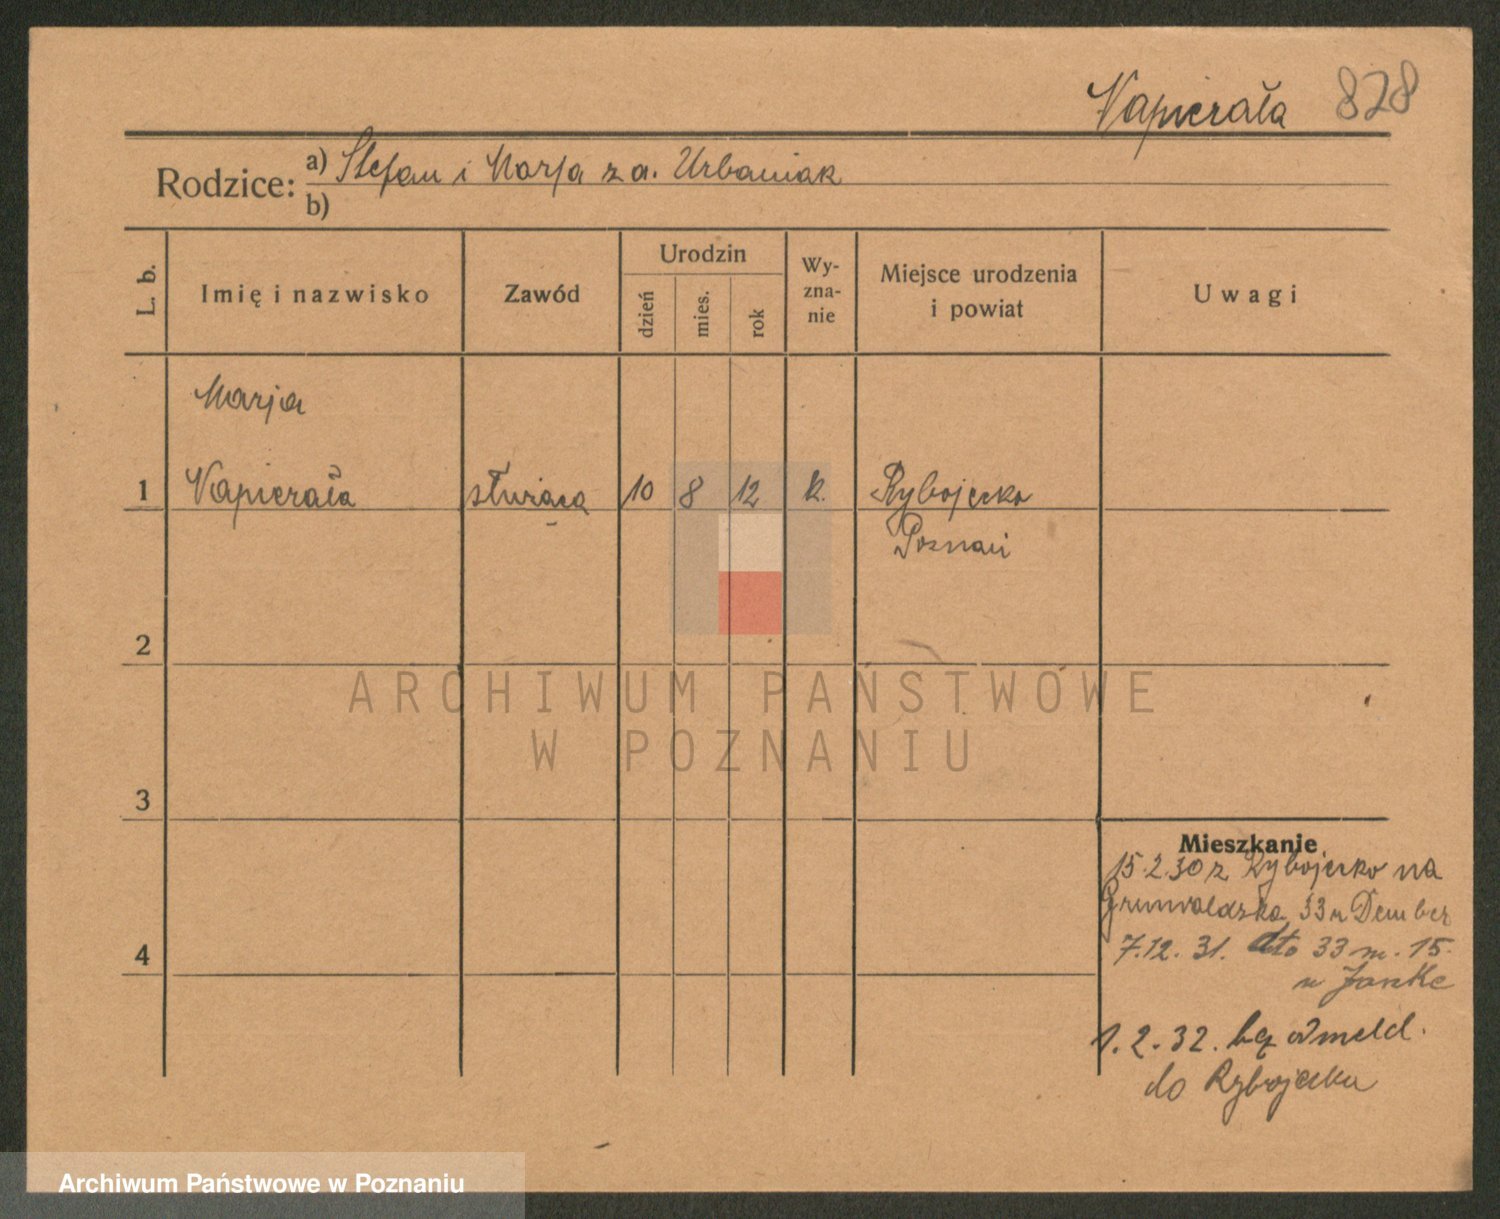 Napierała 828
Rodzice: a) Stefan i Marja z d. Urbaniak
b)
L. b.
Imię i nazwisko
Zawód
Urodzin
dzień
mies.
rok
Wy-
zna-
nie
Miejsce urodzenia
i powiat
Uwagi
Marja
1 Napierała służąca 10 8 12 k. Rybojedzko
Poznań
2
ARCHIWUM PAŃSTWOWE
W POZNANIU
3
Mieszkanie
15.2.30 z na
Grunwaldzka 33 u
4
7.12.31. dto 33 m. 15.
u
1.2.32. odmeld.
do
Archiwum Państwowe w Poznaniu